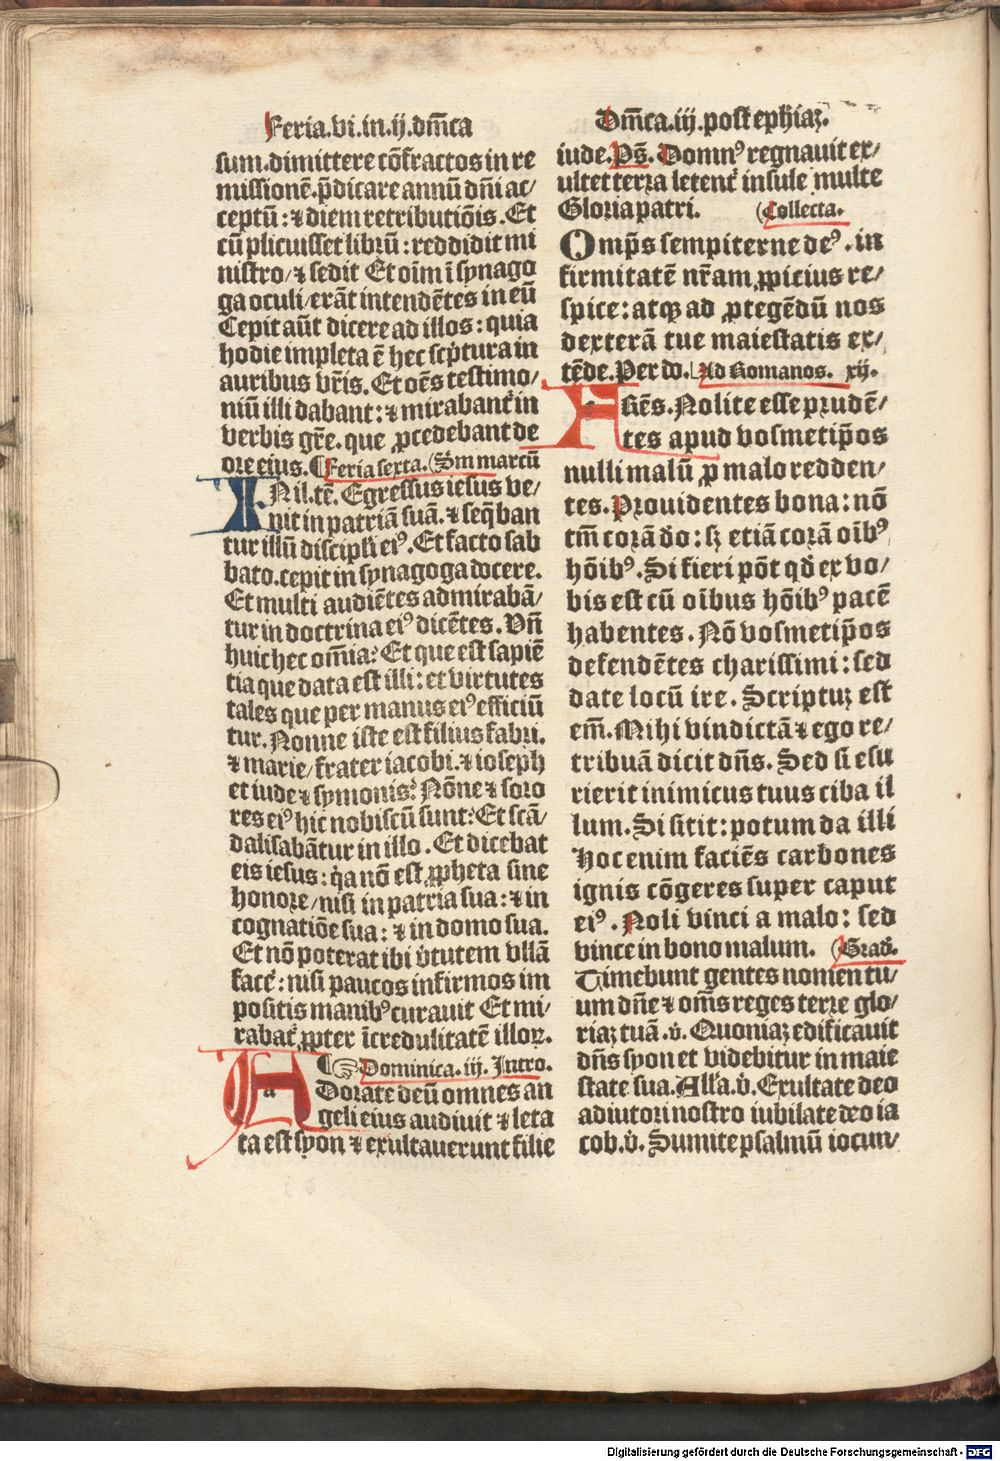 Feria.vi.in.ij.dm̄ca
sum.dimittere cōfractos in re
missionē.p̄dicare annū dn̄i ac/
ceptū:⁊ diem retributiōis.Et
cū plicuisset librū:reddidit mi
nistro/⁊ sedit Et oīm ī synago
ga oculi/erāt intendētes in eū
Cepit aūt dicere ad illos:quia
hodie impleta ē hec scp̄tura in
auribus vr̄is. Et oēs testimo/
niū illi dabant:⁊ mirabant᷑ in
verbis gr̄e.que ꝓcedebant de
ore eius. ¶Feria sexta.(Sm̄ marcū
IN il.tē. Egressus iesus ve/
nit in patriā suā.⁊ seq̄ban
tur illū discipli eiꝰ.Et facto sab
bato.cepit in synagoga docere.
Et multi audiētes admirabā/
tur in doctrina eiꝰ dicētes.Vn̄
huic hec om̄ia:Et que est sapiē
tia que data est illi:et virtutes
tales que per manus eiꝰ efficiū
tur.Nonne iste est filius fabri.
⁊ marie/frater iacobi.⁊ ioseph
et iude ⁊ symonis:Nōne ⁊ soro
res eiꝰ hic nobiscū sunt:Et scā/
dalisabātur in illo.Et dicebat
eis iesus:q̇a nō est ꝓpheta sine
honore/nisi in patria sua:⁊ in
cognatiōe sua:⁊ in domo sua.
Et nō poterat ibi v̇tutem vllā
facē:nisi paucos infirmos im
positis manibꝰ curauit Et mi/
rabat᷑ ꝓpter īcredulitatē illoꝝ.
¶☞Dominica.iij.Intro.
ADorate deū omnes an
geli eius audiuit ⁊ leta
ta est syon ⁊ exultauerunt filie
Dm̄ca.iij.post ephiaꝫ.
iude.Ps̄. Domnꝰ regnauit ex/
ultet terra letent᷑ insule multe
Gloria patri. (Collecta.
Omp̄s sempiterne deꝰ.in
firmitatē nr̄am ꝓpicius re/
spice:atqꝫ ad ꝓtegēdū nos
dexterā tue maiestatis ex/
tēde.Per do. Ad Romanos. xij.
FRēs.Nolite esse prudē/
tes apud vosmetip̄os
nulli malū ꝓ malo redden/
tes.Prouidentes bona:nō
tm̄ corā do:sꝫ etiā corā oībꝰ
hōibꝰ.Si fieri pōt qd̄ ex vo/
bis est cū oībus hōibꝰ pacē
habentes.Nō vosmetip̄os
defendētes charissimi:sed
date locū ire.Scriptuꝫ est
em̄.Mihi vindictā ⁊ ego re/
tribuā dicit dn̄s.Sed si esu
rierit inimicus tuus ciba il
lum.Si sitit:potum da illi
Hoc enim faciēs carbones
ignis cōgeres super caput
eiꝰ.Noli vinci a malo:sed
vince in bono malum. (Grad.
Timebunt gentes nomen tu/
um dn̄e ⁊ om̄s reges terre glo/
riaꝫ tuā.v̇. Quoniaꝫ edificauit
dn̄s syon et videbitur in maie
state sua.All'a.v̇.Exultate deo
adiutori nostro iubilate deo ia
cob.v̇.Sumite psalmū iocun/
Digitalisierung gefördert durch die Deutsche Forschungsgemeinschaft - DFG